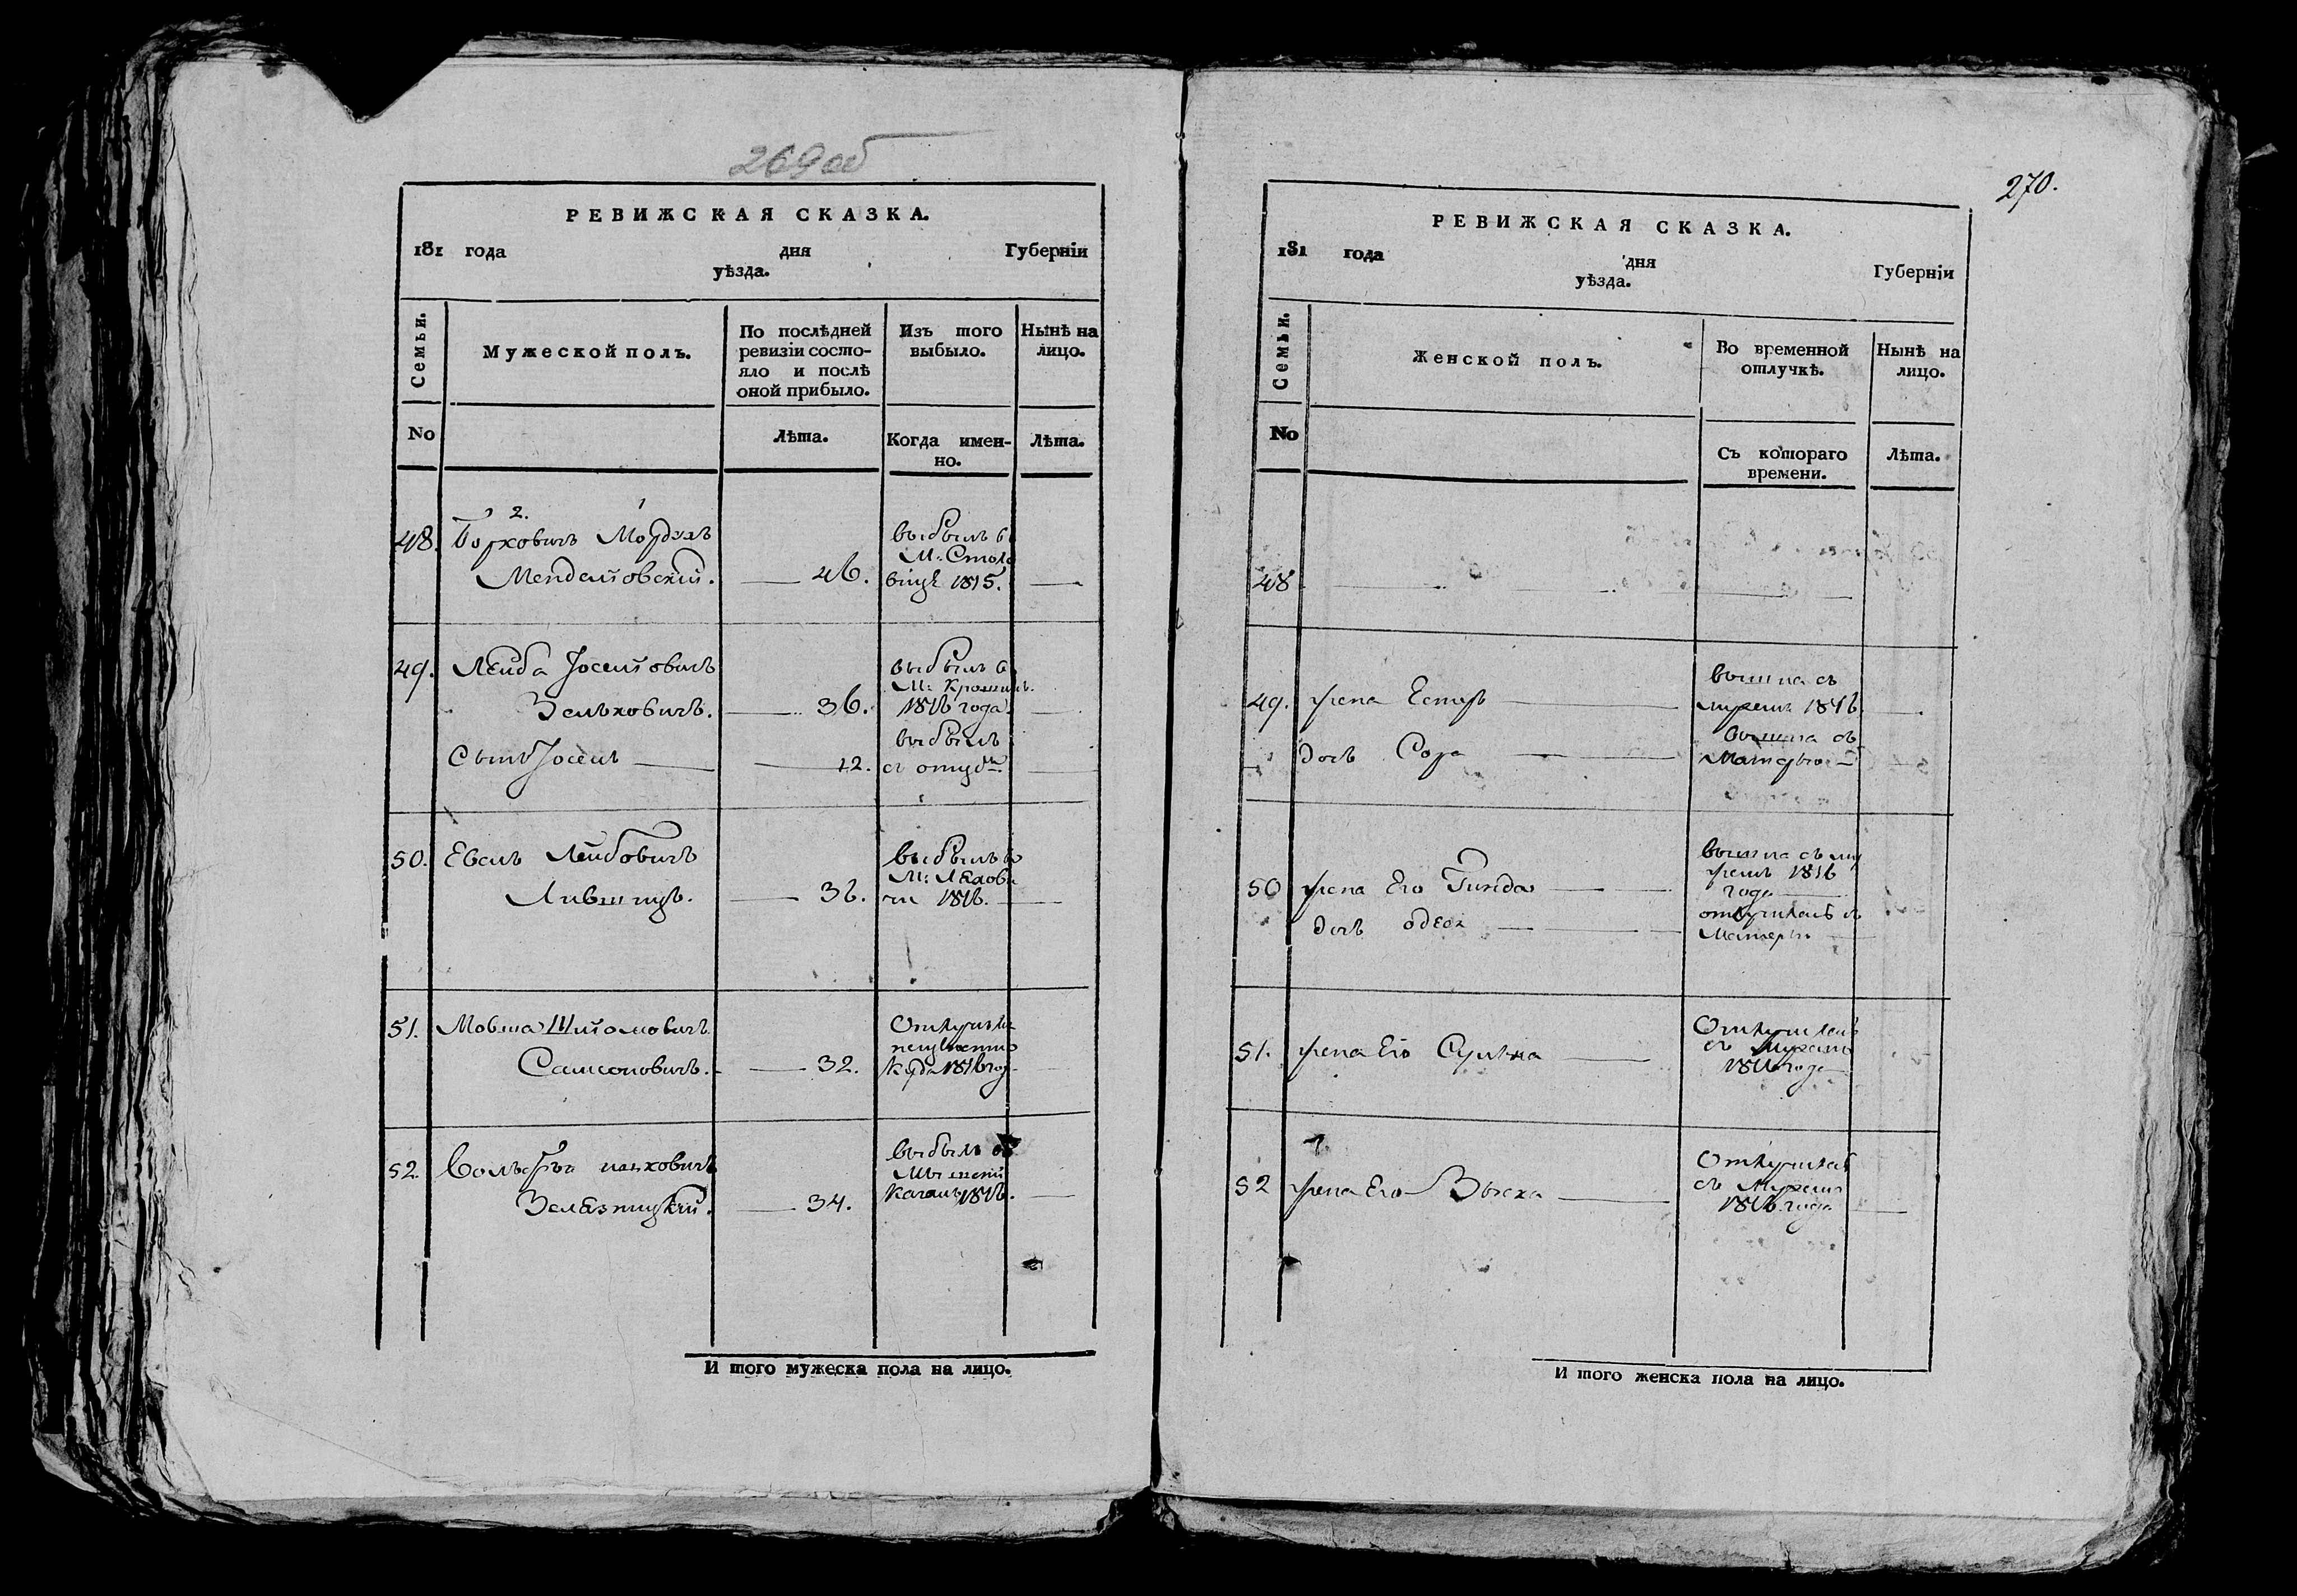 269 об
РЕВИЖСКАЯ СКАЗКА.
181 года дня Губерніи
уѣзда.
Семьи.
Мужеской полъ.
По послѣдней ревизіи состо-
яло и послѣ
оной прибыло.
Изъ того
выбыло.
Нынѣ на
лицо.
No
Лѣта.
Когда имен-
но.
Лѣта.
2. 1
48. Борховичъ Мордухъ
Менделіовскій. 46.
выбылъ въ
М: Столо
вицѣ 1815.
49. Лейба Іоселіовичъ
Зельховичъ. 36.
выбылъ въ
М: Крошинъ
1816 года
Сынъ Іосель 12.
выбылъ
съ отцомъ
50. Евель Лейбовичъ
Лившицъ. 36.
выбылъ во
М: Ляхови
чи 1816.
51. Мовша Шліомовичъ
Самсоновичъ. 32.
неизвѣстно
куда 1816 год
52.
Зелязницкій. 34.
выбылъ въ
1816.
270.
РЕВИЖСКАЯ СКАЗКА.
181 года дня Губерніи
уѣзда.
Семьи.
Женской полъ.
Во временной
отлучкѣ.
Нынѣ на
лицо.
No
Съ котораго
времени.
Лѣта.
48
49. жена Естеръ
вышла съ
мужемъ 1816
дочь Сора
вышла съ
Матерью
50 жена Его Гинда
вышла съ му
жемъ 1816
года
дочь одеса
отлучилась съ
Матерью
51. жена Его
Отлучилась
съ Мужемъ
1816 года
52 жена Его
Отлучилась
съ Мужемъ
1816 года
И того мужеска пола на лицо.
И того женска пола на лицо.